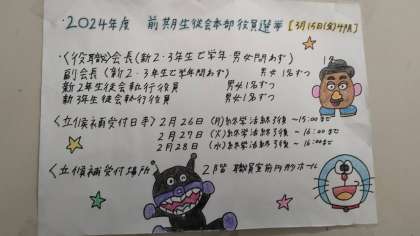 ・2024年度 前期生徒会本部役員選挙 [3月15日(金)4時間]
・<役職>会長(新2・3年生で学年・男女問わず) 1名
副会長(新2・3年生で学年問わず) 男女1名ずつ
新2年生徒会執行役員 男女1名ずつ
新3年生徒会執行役員 男女1名ずつ
<立候補受付日時> 2月26日(月)終学活終了後〜15:00まで
2月27日(火)終学活終了後〜16:00まで
2月28日(水)終学活終了後〜16:00まで
<立候補受付場所> 2階 職員室前円形ホール